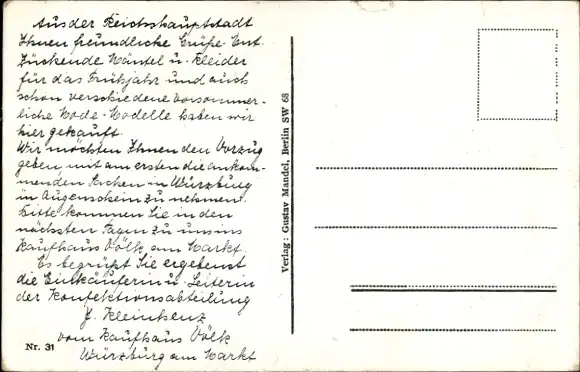 Aus der Reichshauptstadt
Ihnen freundliche Grüße. Ent-
zückende Mäntel u. Kleider
für das Frühjahr und auch
schon verschiedene vorsommer-
liche Mode-Modelle haben wir
hier gekauft.
Wir möchten Ihnen den Vorzug
geben, mit am ersten die ankom-
menden Sachen in Würzburg
in Augenschein zu nehmen.
Bitte kommen Sie in den
nächsten Tagen zu uns ins
Kaufhaus Völk am Markt.
Es begrüßt Sie ergebenst
die Einkäuferin u. Leiterin
der Konfektionsabteilung
J. Kleinhenz
vom Kaufhaus Völk
Würzburg am Markt
Nr. 31
Verlag: Gustav Mandel, Berlin SW 68